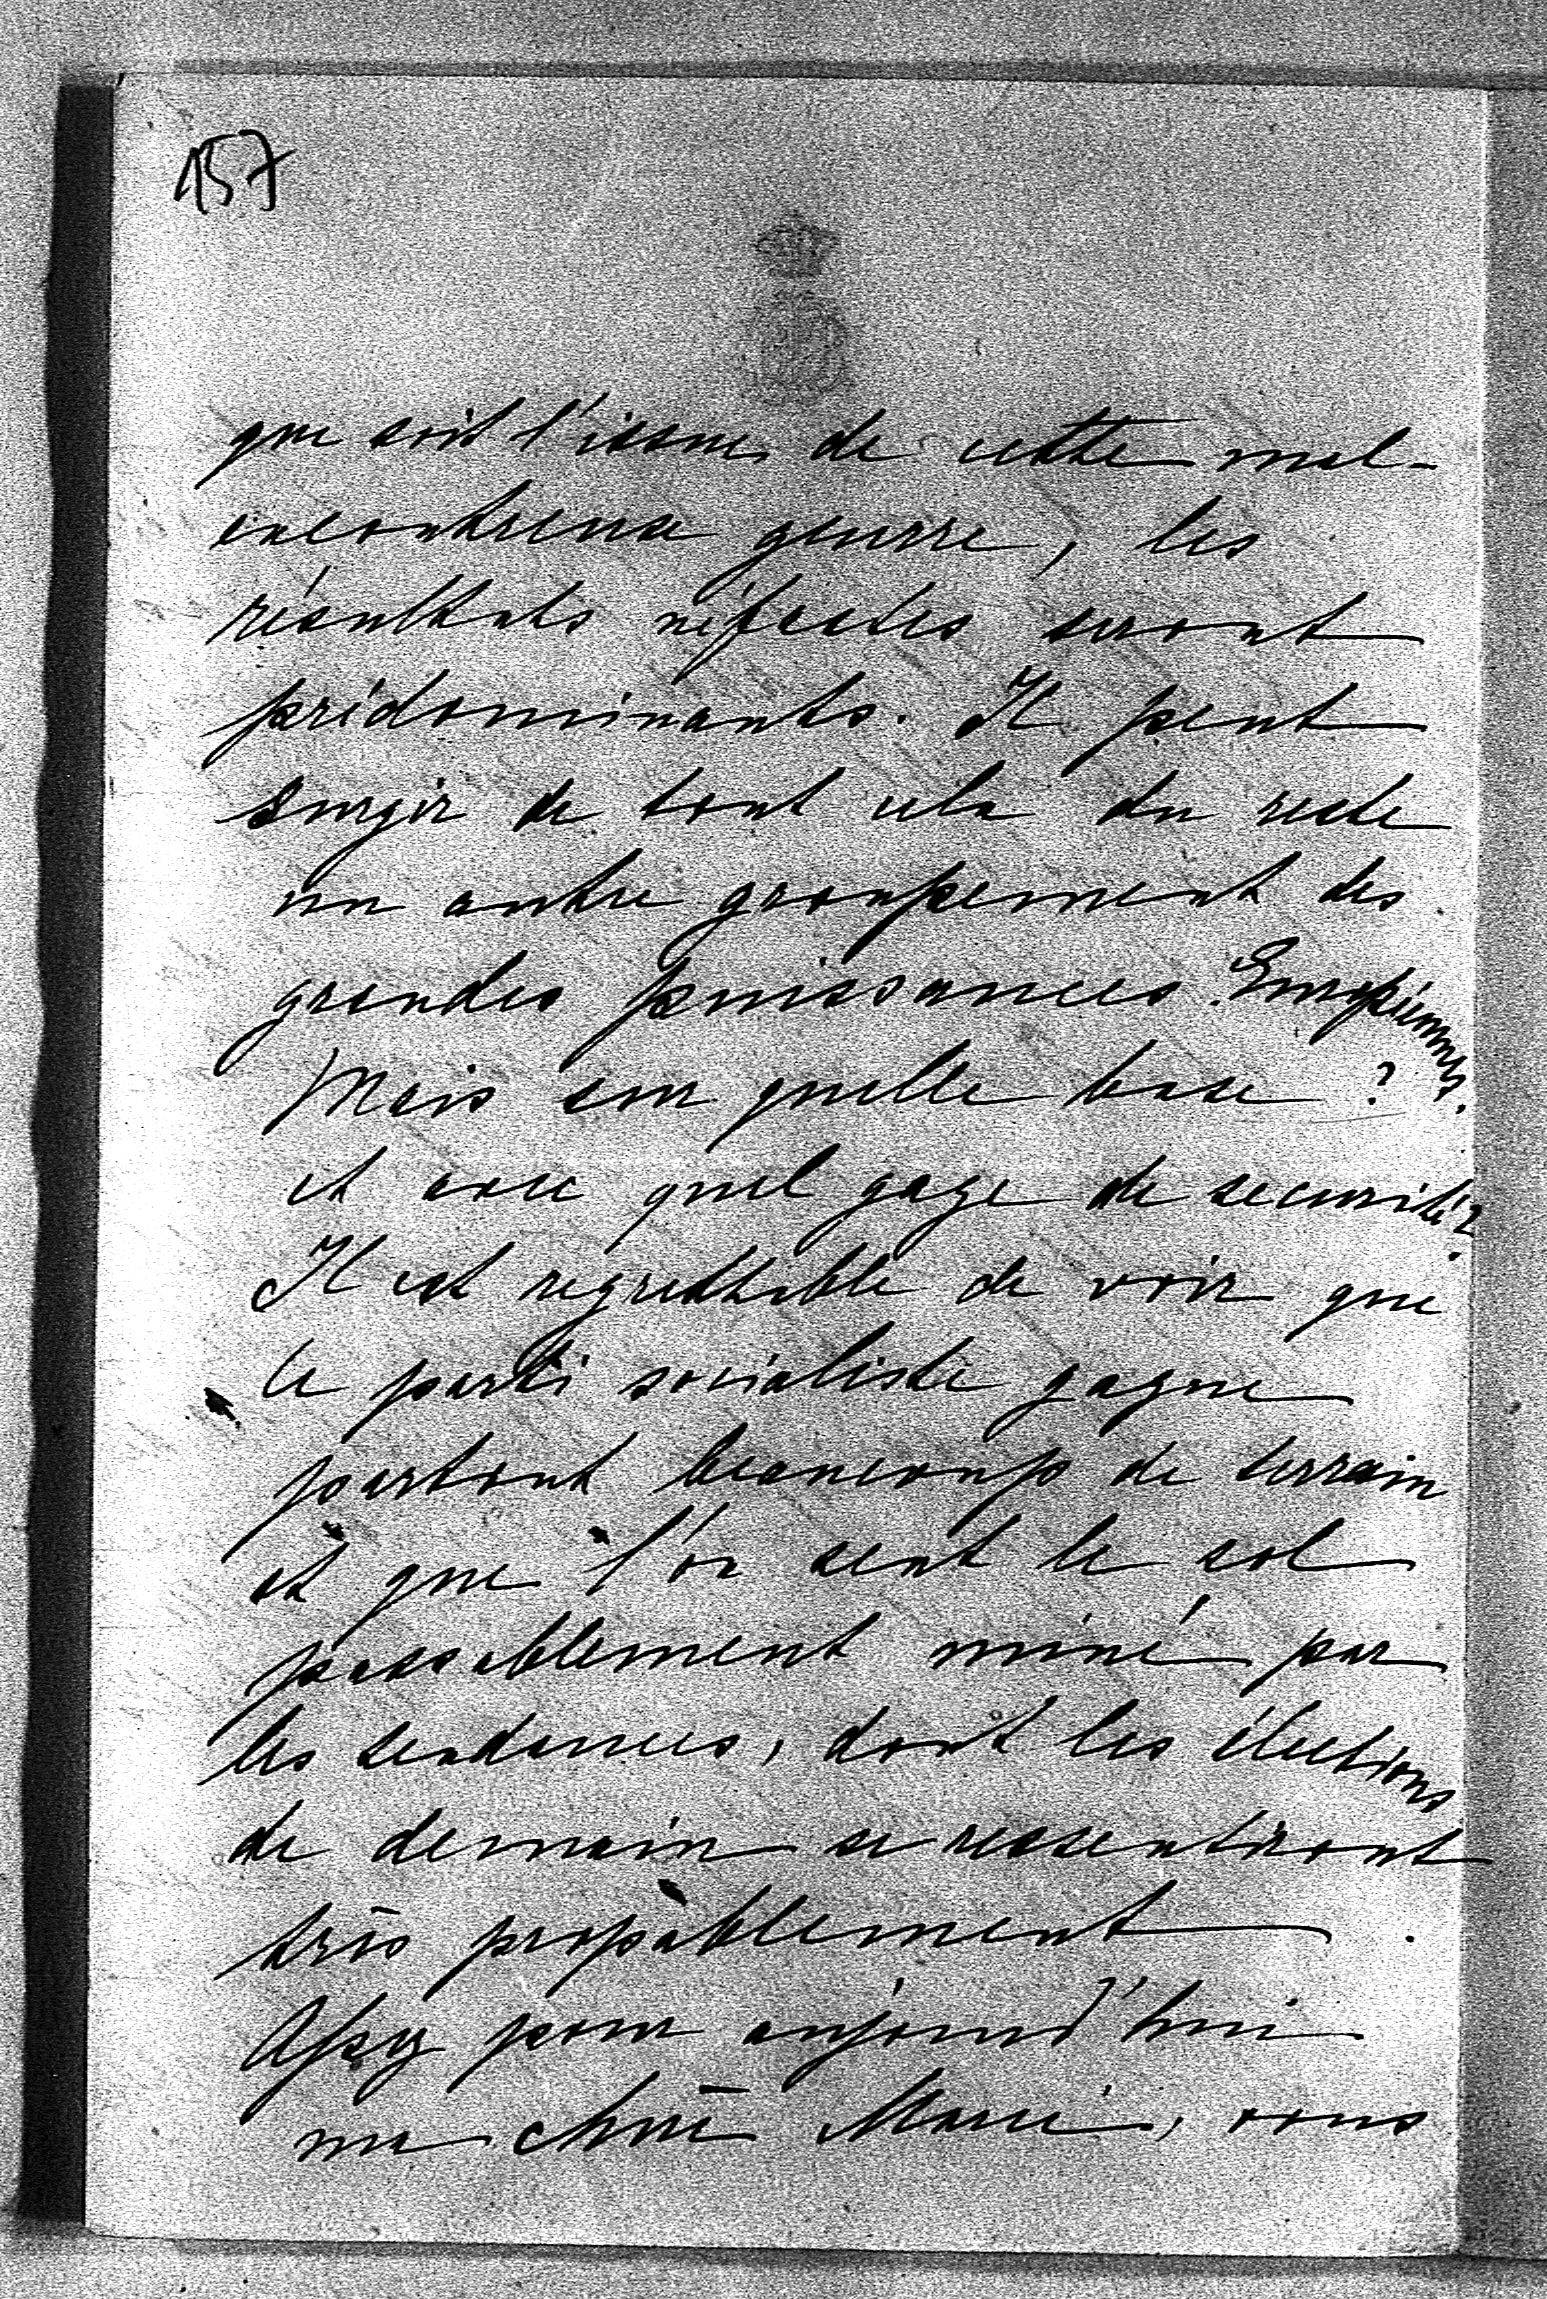 157
que soit l'issue de cette mal-
encontreuse guerre, les
résultats néfastes seront
prédominants. Il peut
surgir de tout cela du reste
un autre groupement des
grandes puissances Européennes.
Mais sur quelle base ?
et avec quel gage de securité ?
Il est regrettable de voir que
le parti socialiste gagne
partout beaucoup de terrain
et que l'on sent le sol
passablement miné par
les tendances, dont les élections
de demain se ressentiront
très propablement.
Assez pour aujourd'hui
ma chère Marie, vous